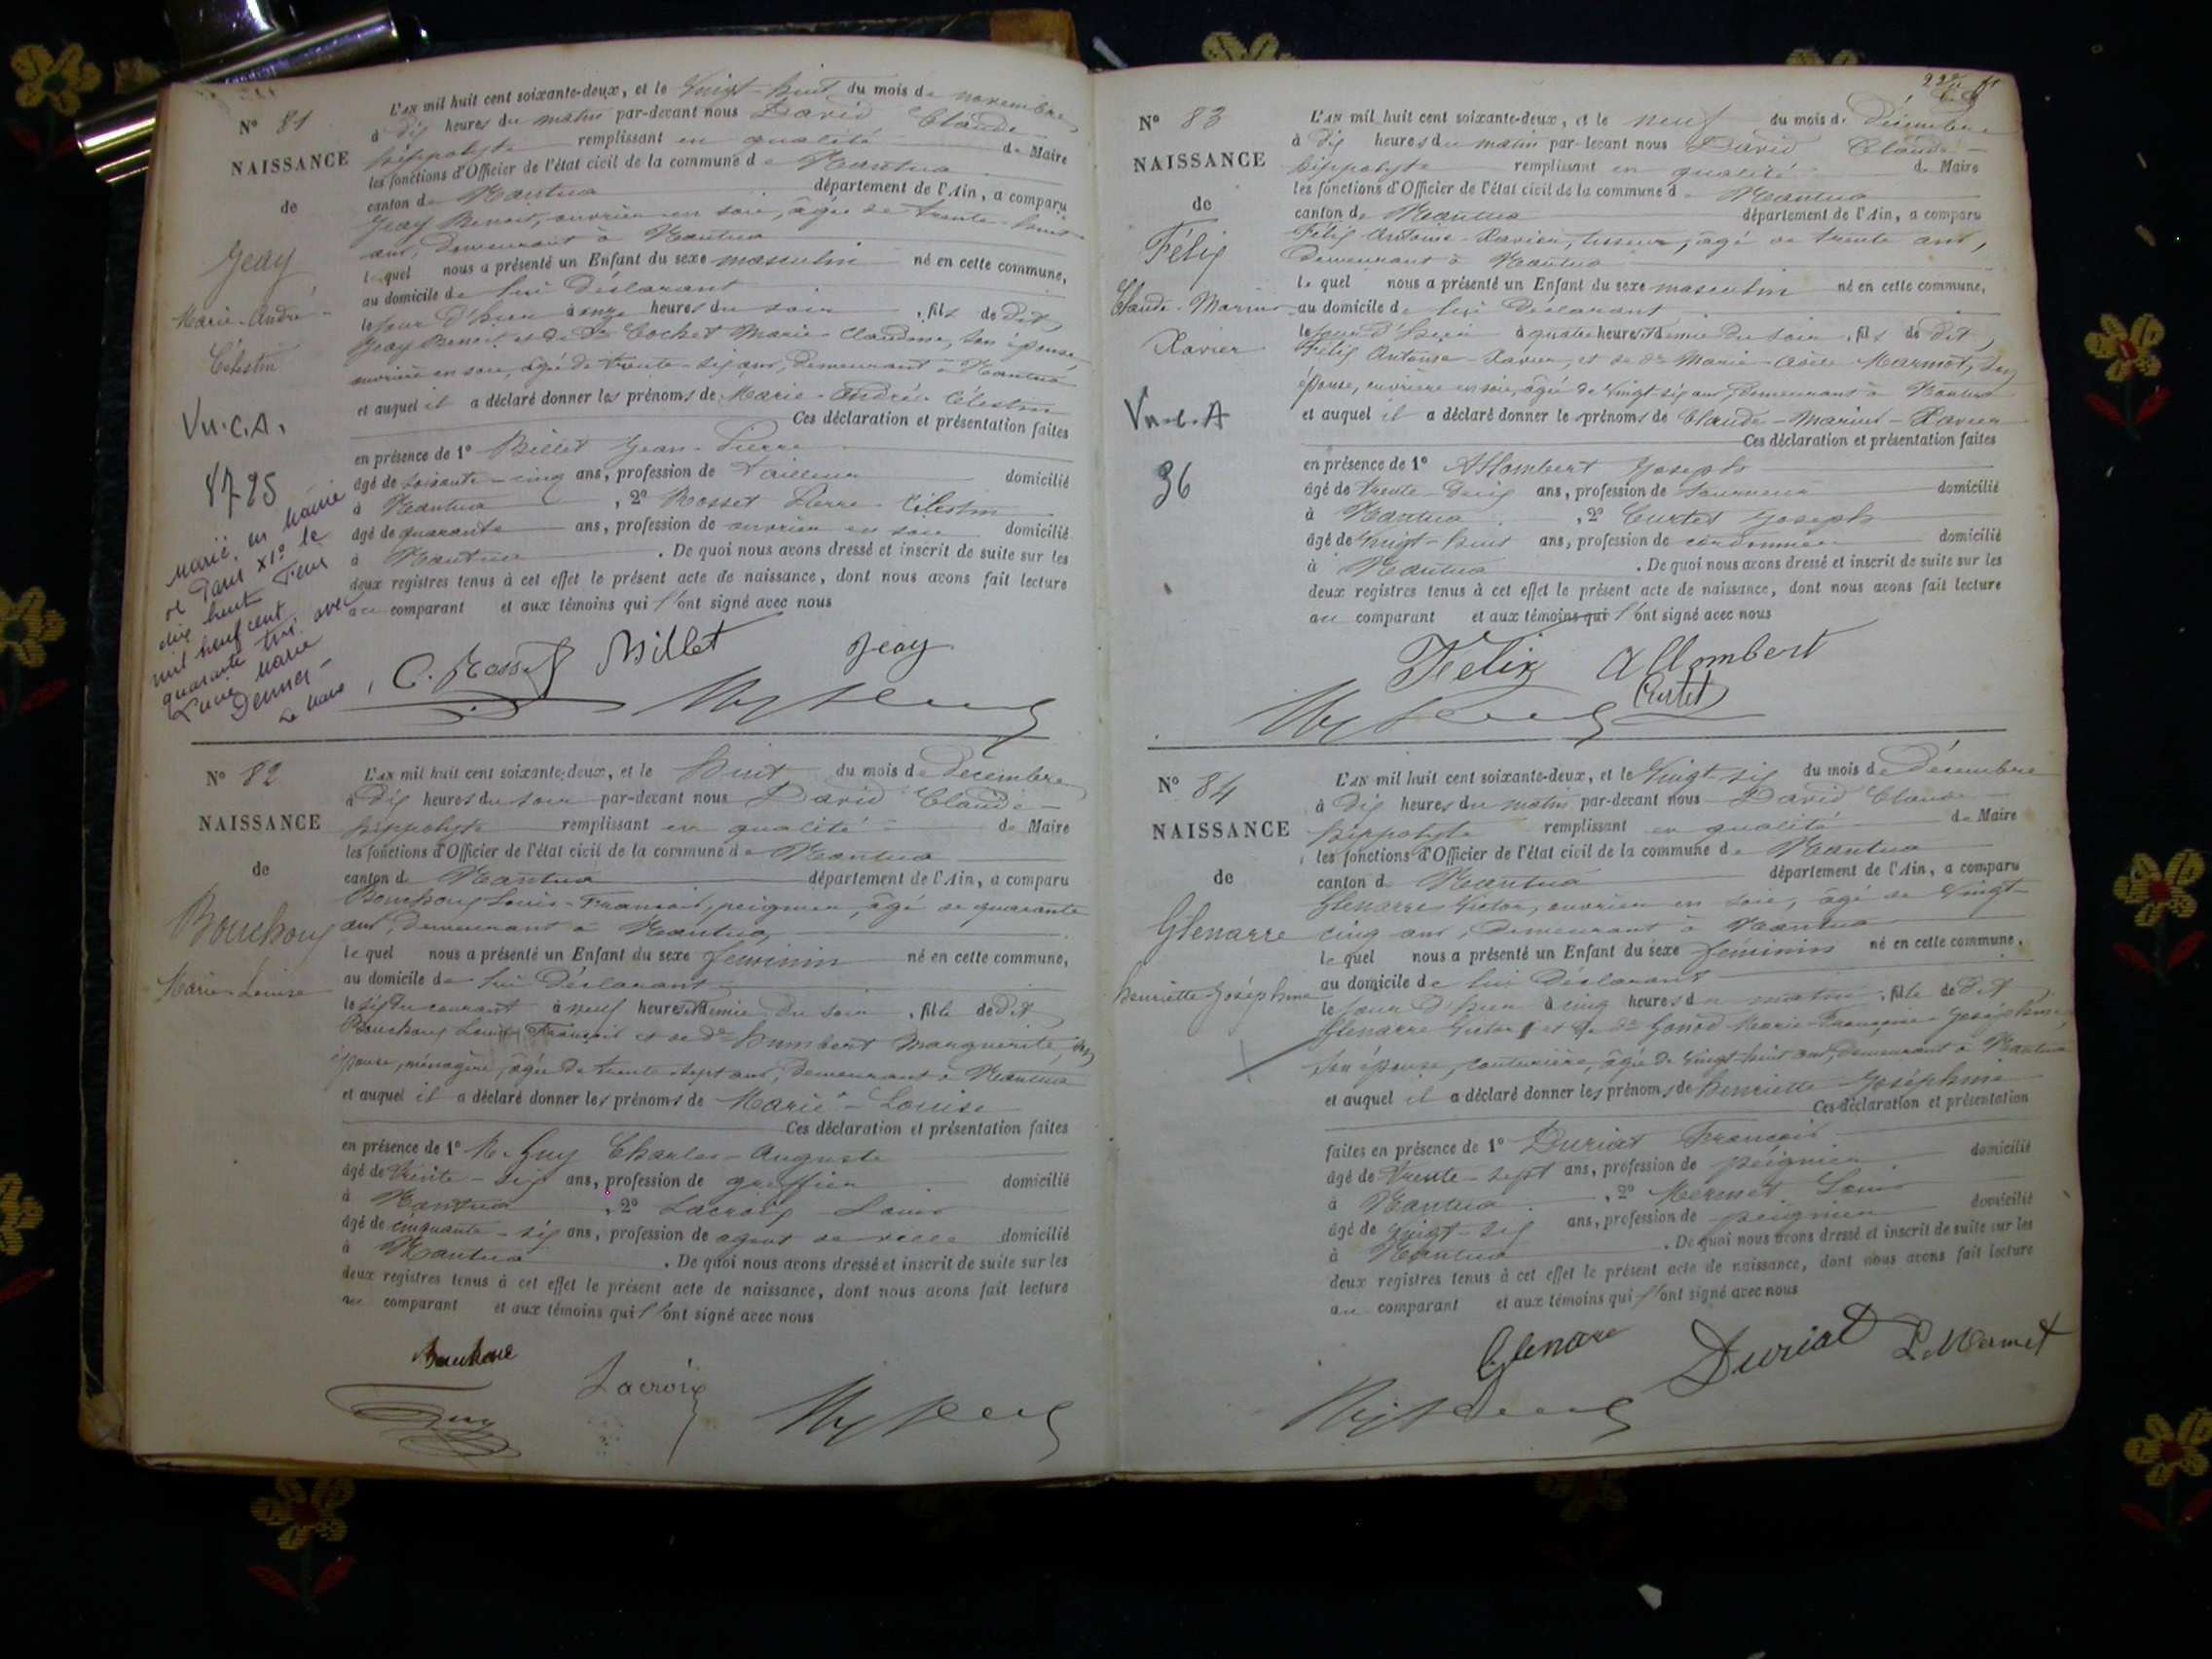 N° 81
NAISSANCE
de
Jeay
Marie-André-
Célestin
Vu.C.A.
8725
Marié en Mairie
de Paris XI° le
dix huit
mil neuf cent
quarante trois avec
Lucie Marie
L'AN mil huit cent soixante-deux, et le Vingt-huit du mois de novembre
à Dix heures du matin par-devant nous David Claude
hippolyte remplissant en qualité de Maire
les fonctions d'Officier de l'état civil de la commune de Nantua
canton de Nantua département de l'Ain, a comparu
Jeay Benoit, ouvrier en soie, âgé de trente-huit
ans, demeurant à Nantua
lequel nous a présenté un Enfant du sexe masculin né en cette commune,
au domicile de lui Déclarant
le jour d'hier à onze heures du soir, fils de dit
Jeay Benoit et de De Cochet Marie-Claudine, son épouse
ouvrière en soie, âgée de trente-six ans, demeurant à Nantua
et auquel il a déclaré donner les prénoms de Marie-André-Célestin
Ces déclaration et présentation faites
en présence de 1° Billet Jean-Pierre
âgé de soixante-cinq ans, profession de Tailleur domicilié
à Nantua, 2° Rosset Pierre-Célestin
âgé de quarante ans, profession de ouvrier en soie domicilié
à Nantua. De quoi nous avons dressé et inscrit de suite sur les
deux registres tenus à cet effet le présent acte de naissance, dont nous avons fait lecture
au comparant et aux témoins qui l'ont signé avec nous
C. Rosset Billet Jeay
N° 82
NAISSANCE
de
Bouchoux
Marie-Louise
L'AN mil huit cent soixante-deux, et le huit du mois de Décembre
à Dix heures du soir par-devant nous David Claude-
hippolyte remplissant en qualité de Maire
les fonctions d'Officier de l'état civil de la commune de Nantua
canton de Nantua département de l'Ain, a comparu
Bouchoux Louis-François, peigneur, âgé de quarante
ans, demeurant à Nantua,
lequel nous a présenté un Enfant du sexe féminin né en cette commune,
au domicile de lui Déclarant
le six du courant à neuf heures et demie du soir, fille de dit
Bouchoux Louis François et de De humbert Marguerite, son
épouse, ménagère, âgée de trente sept ans, demeurant à Nantua
et auquel il a déclaré donner les prénoms de Marie-Louise
Ces déclaration et présentation faites
en présence de 1° M. Guy Charles-Auguste
âgé de trente-six ans, profession de greffier domicilié
à Nantua, 2° Lacroix Louis
âgé de cinquante-six ans, profession de agent de ville domicilié
à Nantua. De quoi nous avons dressé et inscrit de suite sur les
deux registres tenus à cet effet le présent acte de naissance, dont nous avons fait lecture
au comparant et aux témoins qui l'ont signé avec nous
Bouchoux
Lacroix
Guy
N° 83
NAISSANCE
de
Félix
Claude-Marius
Xavier
Vu.C.A
36
L'AN mil huit cent soixante-deux, et le neuf du mois de Décembre
à Dix heures du matin par-devant nous David Claude-
hippolyte remplissant en qualité de Maire
les fonctions d'Officier de l'état civil de la commune de Nantua
canton de Nantua département de l'Ain, a comparu
Félix Antoine-Xavier, tisseur, âgé de trente ans,
demeurant à Nantua
lequel nous a présenté un Enfant du sexe masculin né en cette commune,
au domicile de lui Déclarant
le jour d'hier à quatre heures et demie du soir, fils de dit
Félix Antoine-Xavier, et de De Marie-Adèle Marmot, son
épouse, ouvrière en soie, âgée de vingt-six ans, demeurant à Nantua
et auquel il a déclaré donner les prénoms de Claude-Marius-Xavier
Ces déclaration et présentation faites
en présence de 1° Allombert Joseph
âgé de trente-deux ans, profession de tourneur domicilié
à Nantua, 2° Curtet Joseph
âgé de vingt-huit ans, profession de cordonnier domicilié
à Nantua. De quoi nous avons dressé et inscrit de suite sur les
deux registres tenus à cet effet le présent acte de naissance, dont nous avons fait lecture
au comparant et aux témoins qui l'ont signé avec nous
Félix Allombert
Curtet
N° 84
NAISSANCE
de
Glenarre
henriette Joséphine
L'AN mil huit cent soixante-deux, et le Vingt-six du mois de Décembre
à Dix heures du matin par-devant nous David Claude
hippolyte remplissant en qualité de Maire
les fonctions d'Officier de l'état civil de la commune de Nantua
canton de Nantua département de l'Ain, a comparu
Glenarre Victor, ouvrier en soie, âgé de vingt-
cinq ans, demeurant à Nantua
lequel nous a présenté un Enfant du sexe féminin né en cette commune,
au domicile de lui Déclarant
le jour d'hier à cinq heures du matin, fille de dit
Glenarre Victor et de De Gonod Marie-Françoise-Joséphine,
son épouse, couturière, âgée de vingt-huit ans, demeurant à Nantua
et auquel il a déclaré donner les prénoms de henriette Joséphine
Ces déclaration et présentation
faites en présence de 1° Duriat François
âgé de trente-sept ans, profession de peigneur domicilié
à Nantua, 2° Mermet Louis
âgé de vingt-six ans, profession de peigneur domicilié
à Nantua. De quoi nous avons dressé et inscrit de suite sur les
deux registres tenus à cet effet le présent acte de naissance, dont nous avons fait lecture
au comparant et aux témoins qui l'ont signé avec nous
Glenare Duriat L. Mermet